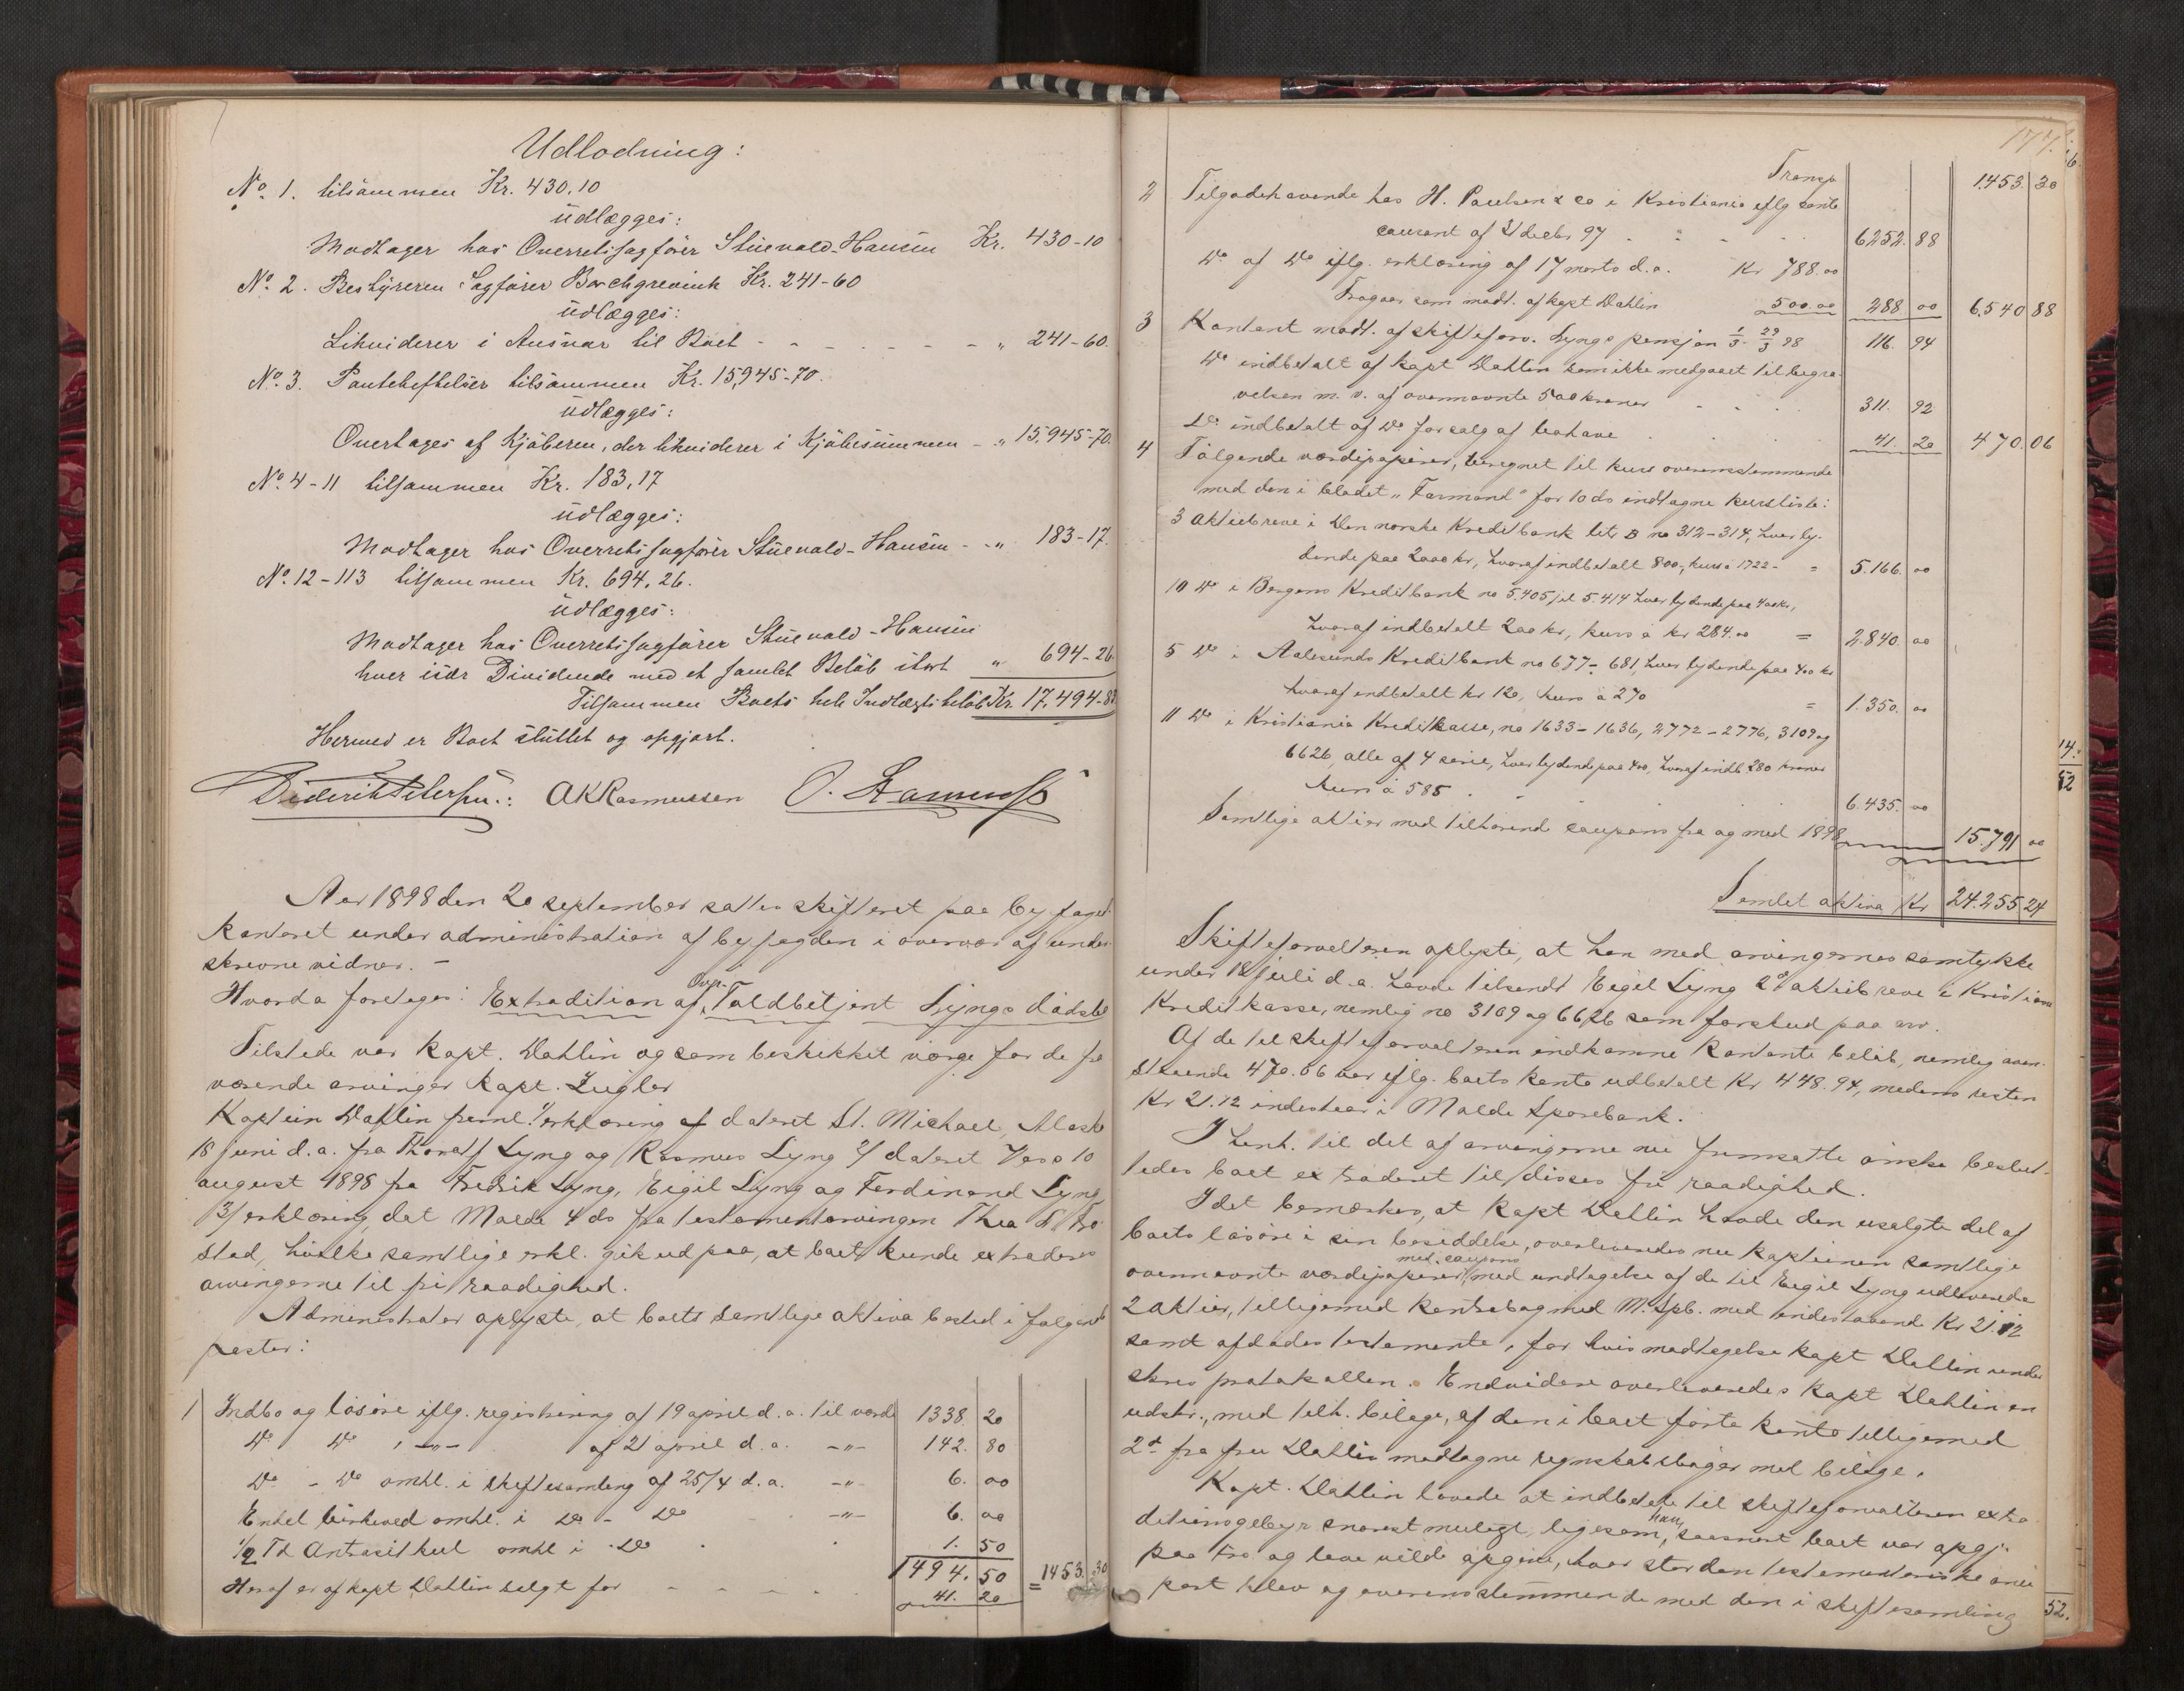 Udlodning:
No. 1. tilsammen Kr. 430.10
udlægges:
Modtager hos Overretssagfører Stuevold-Hansen Kr. 430-10
No. 2. Bestyreren Sagfører Borchgrevink Kr. 241-60
udlægges:
Likviderer i Ansvar til Boet - - - - - - " 241-60.
No. 3. Panteheftelser tilsammen Kr. 15,945-70.
udlægges:
Overtages af Kjøberen, der likviderer i Kjøbesummen - " 15,945-70.
No. 4-11 tilsammen Kr. 183,17
udlægges:
Modtager hos Overretssagfører Stuevold-Hansen - " 183-17.
No. 12-113 tilsammen Kr. 694.26.
udlægges:
Modtager hos Overretssagfører Stuevold-Hansen
hver især Dividende med et samlet Beløb stort " 694-26
Tilsammen Boets hele Indtægtsbeløb Kr. 17,494-83
Hermed er Boet sluttet og opgjort.
Diderik Petersen.: OKRasmussen
Aar 1898 den 20 september sattes skifteret paa byfoged-
kontoret under administration af byfogden i overvær af under-
skrevne vidner. -
Hvorda foretoges: Extradition af Over-Toldbetjent Lyngs dødsbo
Tilstede var Kapt. Dahlin og som beskikket værge for de fra
værende arvinger Kapt. Zeigler
Kaptein Dahlin freml. 1/ erklæring af dateret St. Michael, Alaska
18 juni d.a. fra Thoralf Lyng og Rasmus Lyng 2/ dateret Vesø 10
august 1898 fra Fredrik Lyng, Eigil Lyng og Ferdinand Lyng
3/ erklæring dat Molde 4 ds fra testamentarvingen Thea
stad, hvilke samtlige erkl. gik ud paa, at boet kunde extraderes
arvingerne til fri raadighed.
Administrator oplyste, at boets samtlige aktiva bestod i følgende
poster:
1 Indbo og løsøre iflg. registrering af 19 april d.a. til værdi 1338. 20
Do Do - " - af 21 april d.a. - " - 142. 80
Do - Do omhl. i skiftesamling af 25/4 d.a. - " - 6. 00
Endel birkeved omhl. i Do - Do - " - 6. 00
1/2 Td Antrasitkul omhl i Do 1. 50
1494. 50
Heraf er af kapt Dahlin solgt for - - - - 41. 20 = 1453. 30
177.
Transp 1453. 30
2 Tilgodehavende hos H. Paulsen & Co i Kristiania iflg conto
courant af 31 decbr 97 6252. 88
Do af Do iflg. erklæring af 17 marts d.a. Kr 788.00
Fragaar som modt. af kapt Dahlin 500.00 288 00 6.540 88
3 Kontant modt. af skifteforv. Lyngs pensjon 1/3 - 29/3 98 116. 94
Do indbetalt af kapt Dahlin som ikke medgaaet til begra-
velsen m. v. af ovennævnte 500 kroner 311. 92
Do indbetalt af Do for salg af bohave 41. 20 470.06
4 Følgende værdipapirer, beregnet til kurs overensstemmende
med den i bladet "Farmand" for 10 ds indtagne kursliste:
3 aktiebreve i Den norske Kreditbank litr B no 312-314, hver ly-
dende paa 2000 kr, hvoraf indbetalt 800,-, kurs a 1722 - = 5.166. 00
10 Do i Bergens Kreditbank no 5.405 til 5.414 hver lydende paa 400 kr,
hvoraf indbetalt 200 kr, kurs a kr 284.00 = 2.840. 00
5 Do i Aalesunds Kreditbank no 677-681, hver lydende paa 400 kr
hvoraf indbetalt kr 120, kurs a 270 = 1.350. 00
11 Do i Kristiania Kreditkasse, no 1633-1636, 2772-2776, 3109 og
6626, alle af 4 serie, hver lydende paa 400, hvoraf indb 280 kroner
kurs a 585 6.435. 00
Samtlige aktier med tilhørende coupons fra og med 1898 15.791 00
Samlet aktiva Kr 24.255 24
Skifteforvalteren oplyste, at han med arvingernes samtykke
under 18 juli d.a. havde tilsendt Eigil Lyng 2 aktiebreve i Kristiania
Kreditkasse, nemlig no 3109 og 6626 som forskud paa arv.
Af de til skifteforvalteren indkomne kontante beløb, nemlig ovan-
staaende 470.06 var iflg. boets konto udbetalt Kr 448.94, medens resten
Kr 21.12 indestaar i Molde Sparebank.
I henh. til det af arvingerne nu fremsatte ønske beslut-
tedes boet extraderet til disses fri raadighed.
Idet bemærkes, at Kapt Dahlin havde den usolgte del af
boets løsøre i sin besiddelse, overleveredes nu kapteinen samtlige
ovennævnte værdipapirer med coupons, med undtagelse af de til Eigil Lyng udleverede
2 aktier, tilligemed kontrabog med M. Spb. med indestaaende Kr 21.12
samt afdødes testamente, for hvis modtagelse kapt Dahlin under
skrev protokollen. Endvidere overleveredes kapt Dahlin en
udskr., med tilh. bilage, af den i boet førte konto tilligemed
2de fra fru Dahlin modtagne regnskabsbøger med bilage.
Kapt. Dahlin lovede at indbetale til skifteforvalteren extra-
ditionsgebyr snarest muligt, ligesom han, saasnart boet var opgj.
paa tro og love vilde opgive, hvor stor den testamentariske arve
part blev og overensstemmende med den i skiftesamling
14.
52
52.